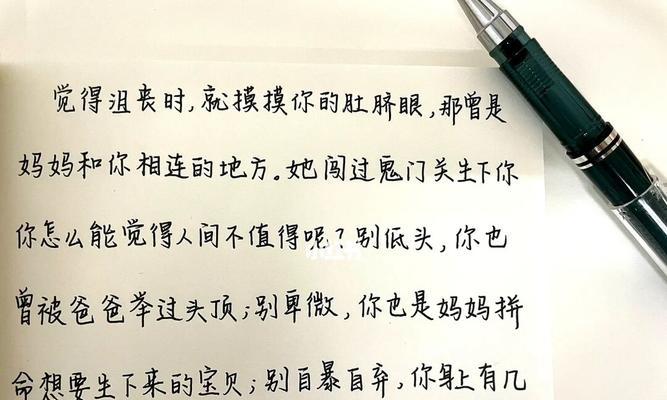 觉得沮丧时,就摸摸你的肚脐眼,那曾是
妈妈和你相连的地方。她闯过鬼门关生下你
你怎么能觉得人间不值得呢?别低头,你也
曾被爸爸举过头顶;别卑微,你也是妈妈拼
命想要生下来的宝贝;别自暴自弃,你身上有几